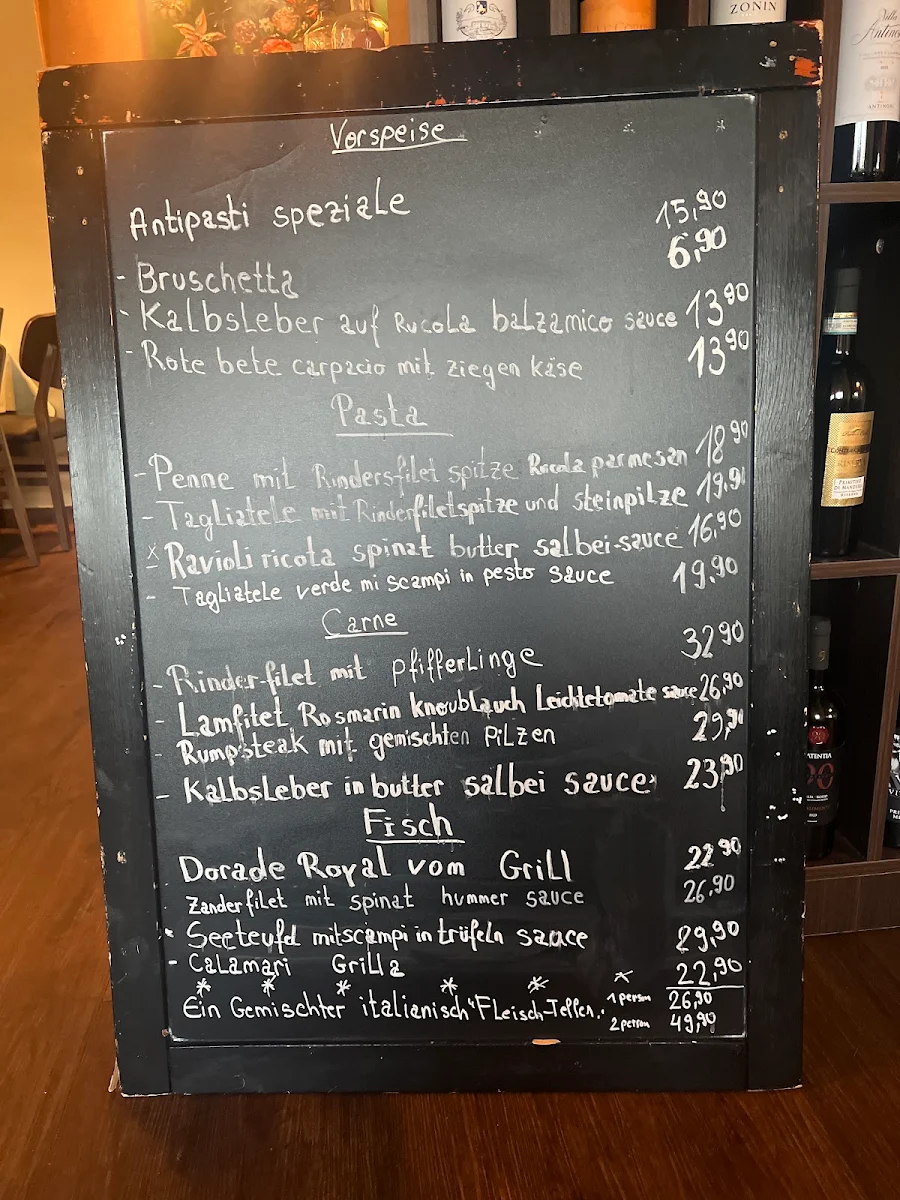 ZONIN
Villa
Antinori
ANTINORI
Vorspeise
Antipasti speziale 15,90
- Bruschetta 6,90
- Kalbsleber auf Rucola balzamico sauce 13 90
- Rote bete carpacio mit ziegen käse 13 90
Pasta
- Penne mit Rindersfilet spitze Rucola parmesan 18 90
- Tagliatele mit Rinderfiletspitze und steinpilze 19,90
x Ravioli ricota spinat butter salbei-sauce 16,90
- Tagliatele verde mi scampi in pesto sauce 19,90
Carne
- Rinder-filet mit pfifferlinge 32 90
- Lamfitet Rosmarin knoublauch Leichtetomate sauce 26,90
- Rumpsteak mit gemischten Pilzen 29,90
- Kalbsleber in butter salbei sauce 23,90
Fisch
Dorade Royal vom Grill 22 90
Zanderfilet mit spinat hummer sauce 26,90
- Seeteufel mitscampi in trüfeln sauce 29,90
- Calamari Grilla 22,90
* * * * * *
Ein Gemischter italianisch "Fleisch-Teller." 1 person 26,90
2 person 49,90